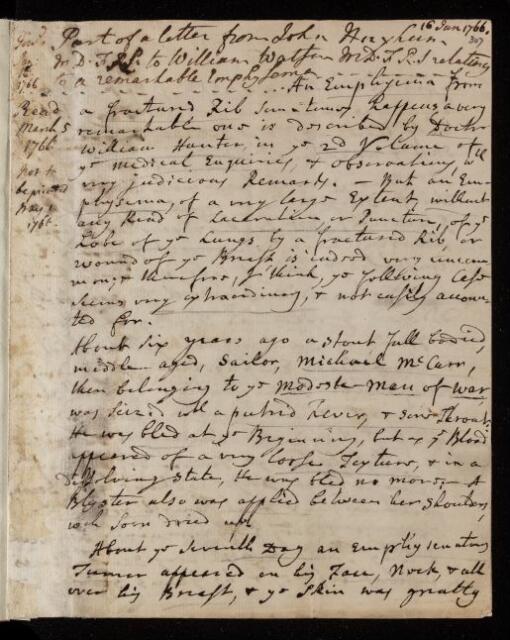 16 Jan 1766.
Part of a letter from John Huxham
M D. F.R.S. to William Watson M D. F. R. S relating
to a remarkable Emphysema
An Emphysema from
a fractured Rib sometimes happens a very
remarkable one is described by Doctor
William Hunter, in ye 2d Volume of ye
medical Enquiries, & observations, wth
very judicious Remarks. – But an Em-
physema, of a very large Extent, without
any kind of Laceration, or Puncture, of ye
Lobe of ye Lungs by a fractured Rib, or
wound of ye Breast is indeed very uncom
mon, & therefore, I think, ye following Case
seems very extraordinary, & not easily accoun
ted for.
About six years ago a stout full bodied,
middle aged, Sailor, Michael McCarr,
then belonging to ye Modeste Man of War,
was seized wth a putrid Fever, & sore Throat.
He was bled at ye Beginning, but as ye Blood
appeared of a very loose Texture, & in a
dissolving state, He was bled no more; – A
Blyster also was applied between her shoulders,
wch soon dried up.
About ye seventh Day an Emphysematous
Tumor appeared on his Face, Neck, & all
over his Breast, & ye Skin was greatly
Read
March 5
1766
Not to
be printed
1766.